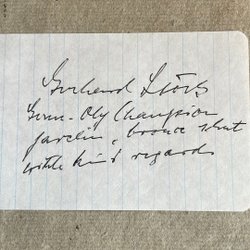 Gerhard Stöck
Germ.-Oly Champion
javelin, bronce shot
with kind regards